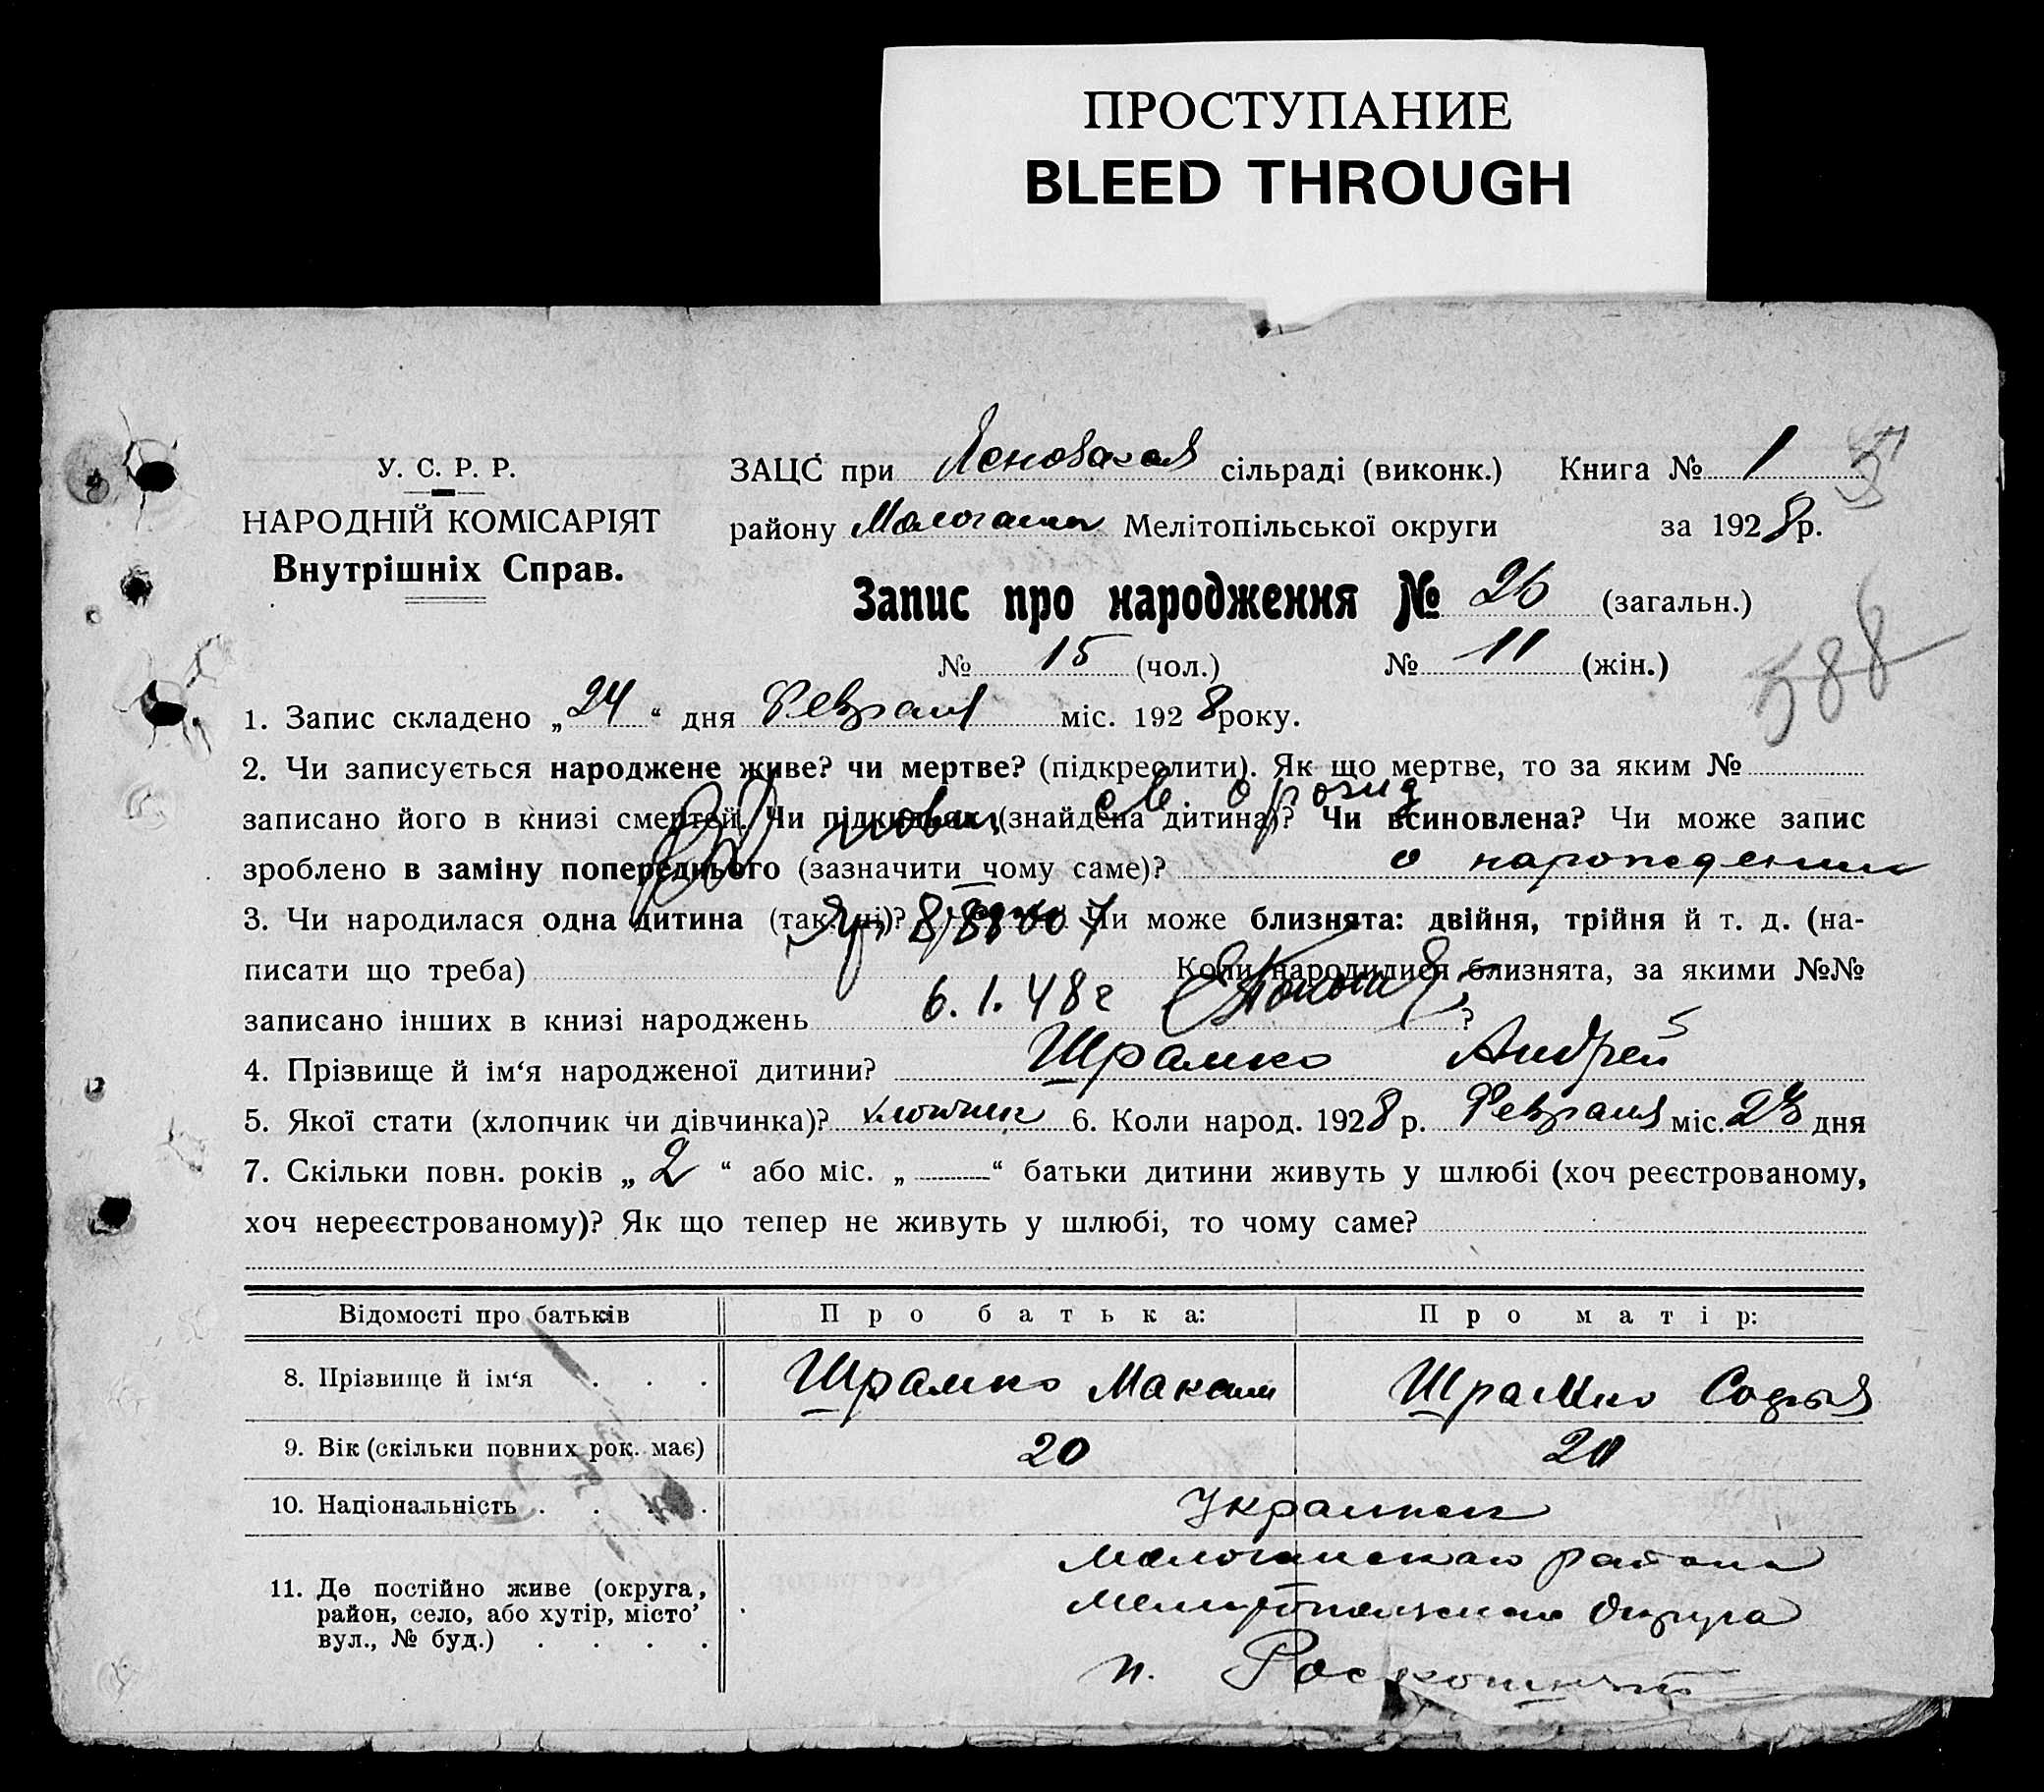 ПРОСТУПАНИЕ
BLEED THROUGH
У. С. Р. Р.
НАРОДНІЙ КОМІСАРІЯТ
Внутрішніх Справ.
ЗАЦС при сільраді (виконк.) Книга № 1
району Мелітопільської округи за 1928 р.
Запис про народження № 26 (загальн.)
№ 15 (чол.) № 11 (жін.)
588
1. Запис складено „24“ дня Февраля міс. 1928 року.
2. Чи записується народжене живе? чи мертве? (підкреслити). Як що мертве, то за яким №
записано його в книзі смертей. Чи підкидьок (знайдена дитина)? Чи всиновлена? Чи може запис
зроблено в заміну попереднього (зазначити чому саме)? о
3. Чи народилася одна дитина (так, ні)? Чи може близнята: двійня, трійня й т. д. (на-
писати що треба) Коли народилися близнята, за якими №№
записано інших в книзі народжень 6.1.48 г ?
4. Прізвище й ім‘я народженої дитини? Шрамко Андрей
5. Якої стати (хлопчик чи дівчинка)? хлопчик 6. Коли народ. 1928 р. Февраля міс. 23 дня
7. Скільки повн. років „2“ або міс. „—“ батьки дитини живуть у шлюбі (хоч реєстрованому,
хоч нереєстрованому)? Як що тепер не живуть у шлюбі, то чому саме?
Відомості про батьків Про батька: Про матір:
8. Прізвище й ім‘я . . . Шрамко Максим Шрамко Софья
9. Вік (скільки повних рок. має) 20 20
10. Національність . . . . Украинск
11. Де постійно живе (округа,
район, село, або хутір, місто,
вул., № буд.) . . . .
района
округа
п. Роскошный